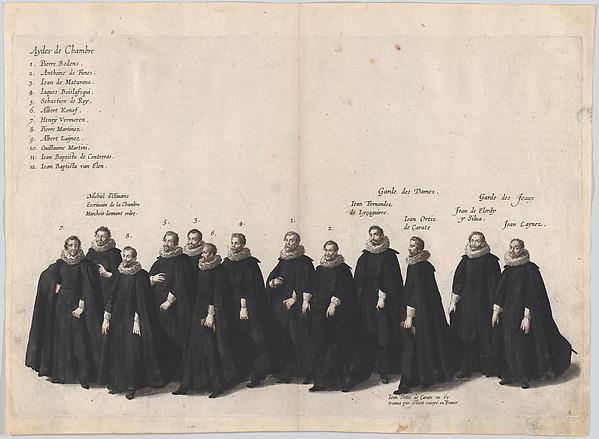 Aydes de Chambre
1. Pierre Bodens.
2. Anthoine de Funes.
3. Iean de Maturana.
4. Iaques Boislafsqui.
5. Sebastien de Rey.
6. Albert
7. Henry Vermeren.
8. Pierre Martinez.
9. Albert Laijnez.
10. Guillaume Martini.
11. Iean Baptista de Contreras.
12. Iean Baptista van Elen.
Michiel
Escrivain de la Chambre
Marchoit donnant ordre.
Garde des Dames.
Iean Fernandez
de
Iean Ortiz
de Çarate
Garde des Joaux
Jean de
y Silua.
Jean Laynez.
7.
8.
5.
3.
6.
4.
1.
2.
Iean Ortiz de Çarate ne s'y
trouva par estant envoyé en France